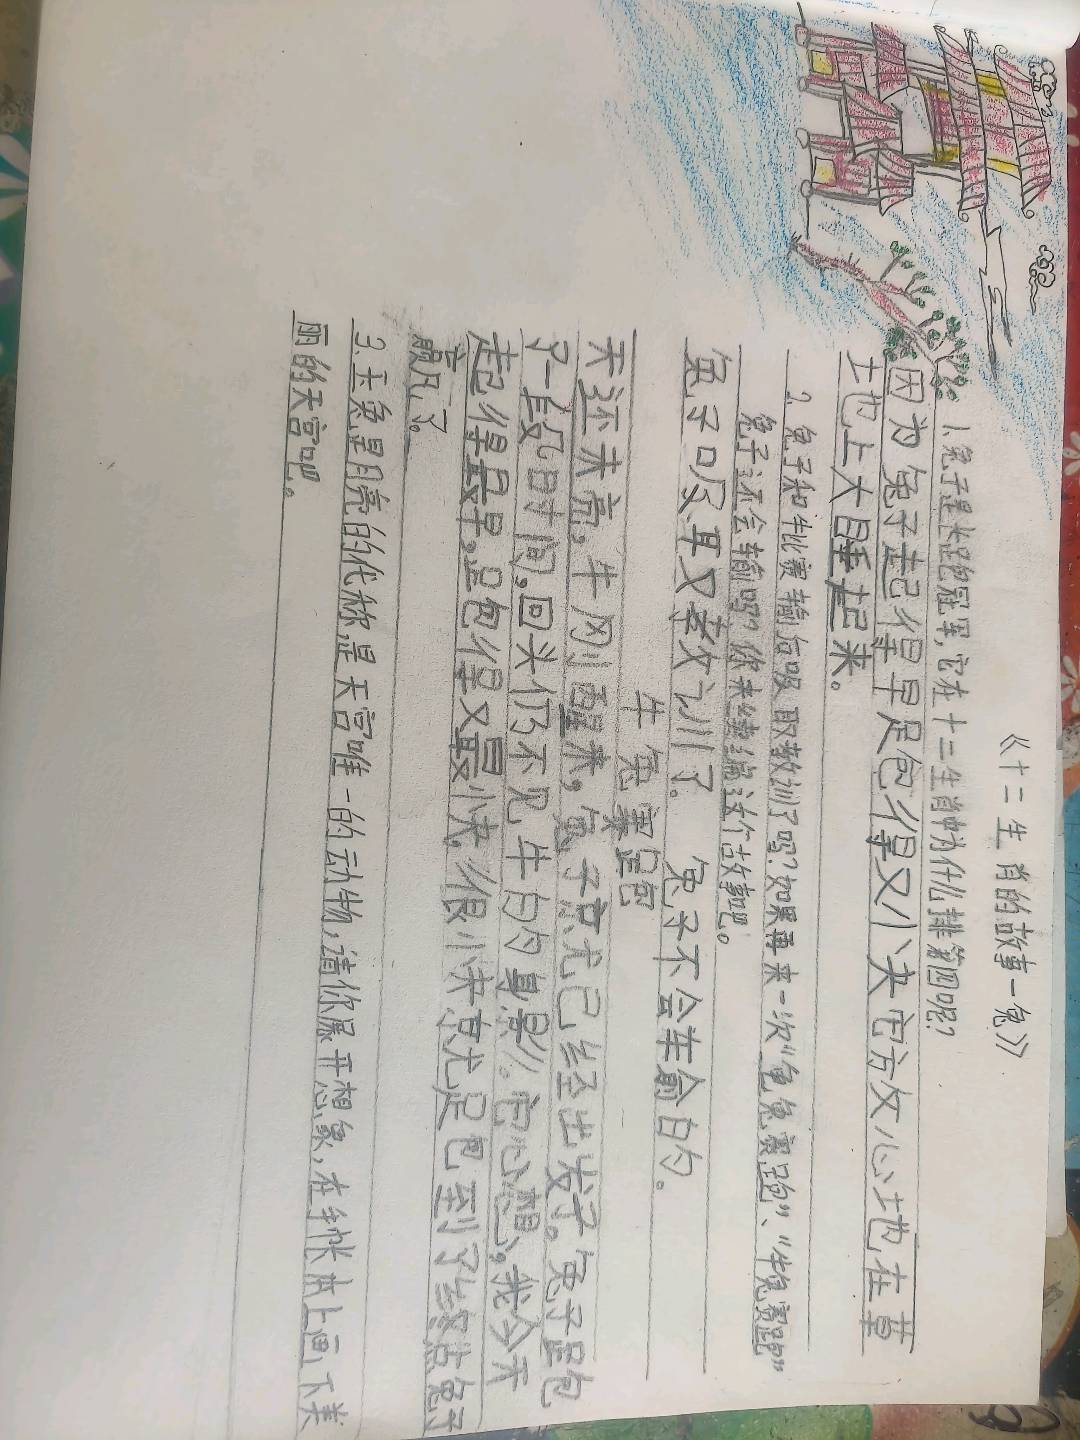 《十二生肖的故事一兔》
1.兔子是长跑冠军,它在十二生肖中为什么排第四呢?
因为兔子起得早跑得又快它放心地在草
地上大睡起来。
2.兔子和牛比赛输后吸取教训了吗?如果再来一次“龟兔赛跑”、“牛兔赛跑”
兔子还会输吗?你来续编这个故事吧。
兔子吸取教训了。 兔子不会输的。
牛兔赛跑
天还未亮,牛刚醒来,兔子就已经出发了。兔子跑
了一段时间,回头仍不见牛的身影。它心想,我今天
起得最早,跑得又最快,很快就跑到了终点兔子
赢了。
3.玉兔是月亮的代称是天宫唯一的动物,请你展开想象,在手帐本上画下美
丽的天宫吧。